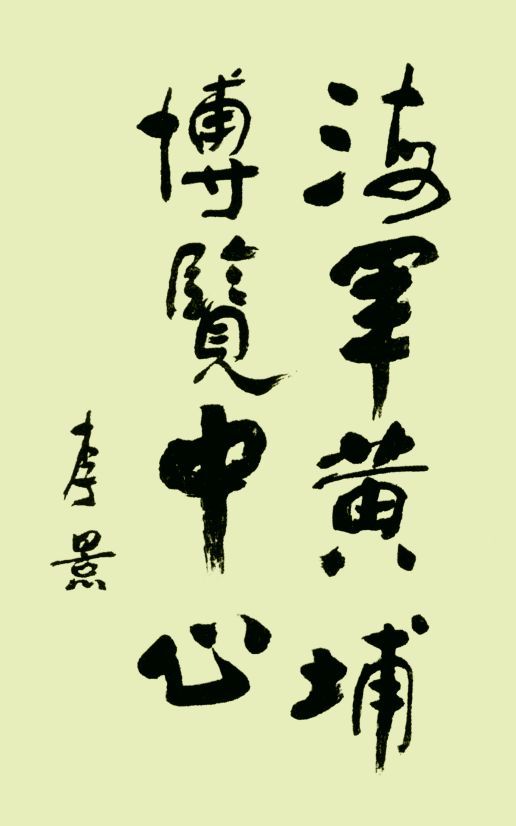 海軍黄埔
博覽中心
李景